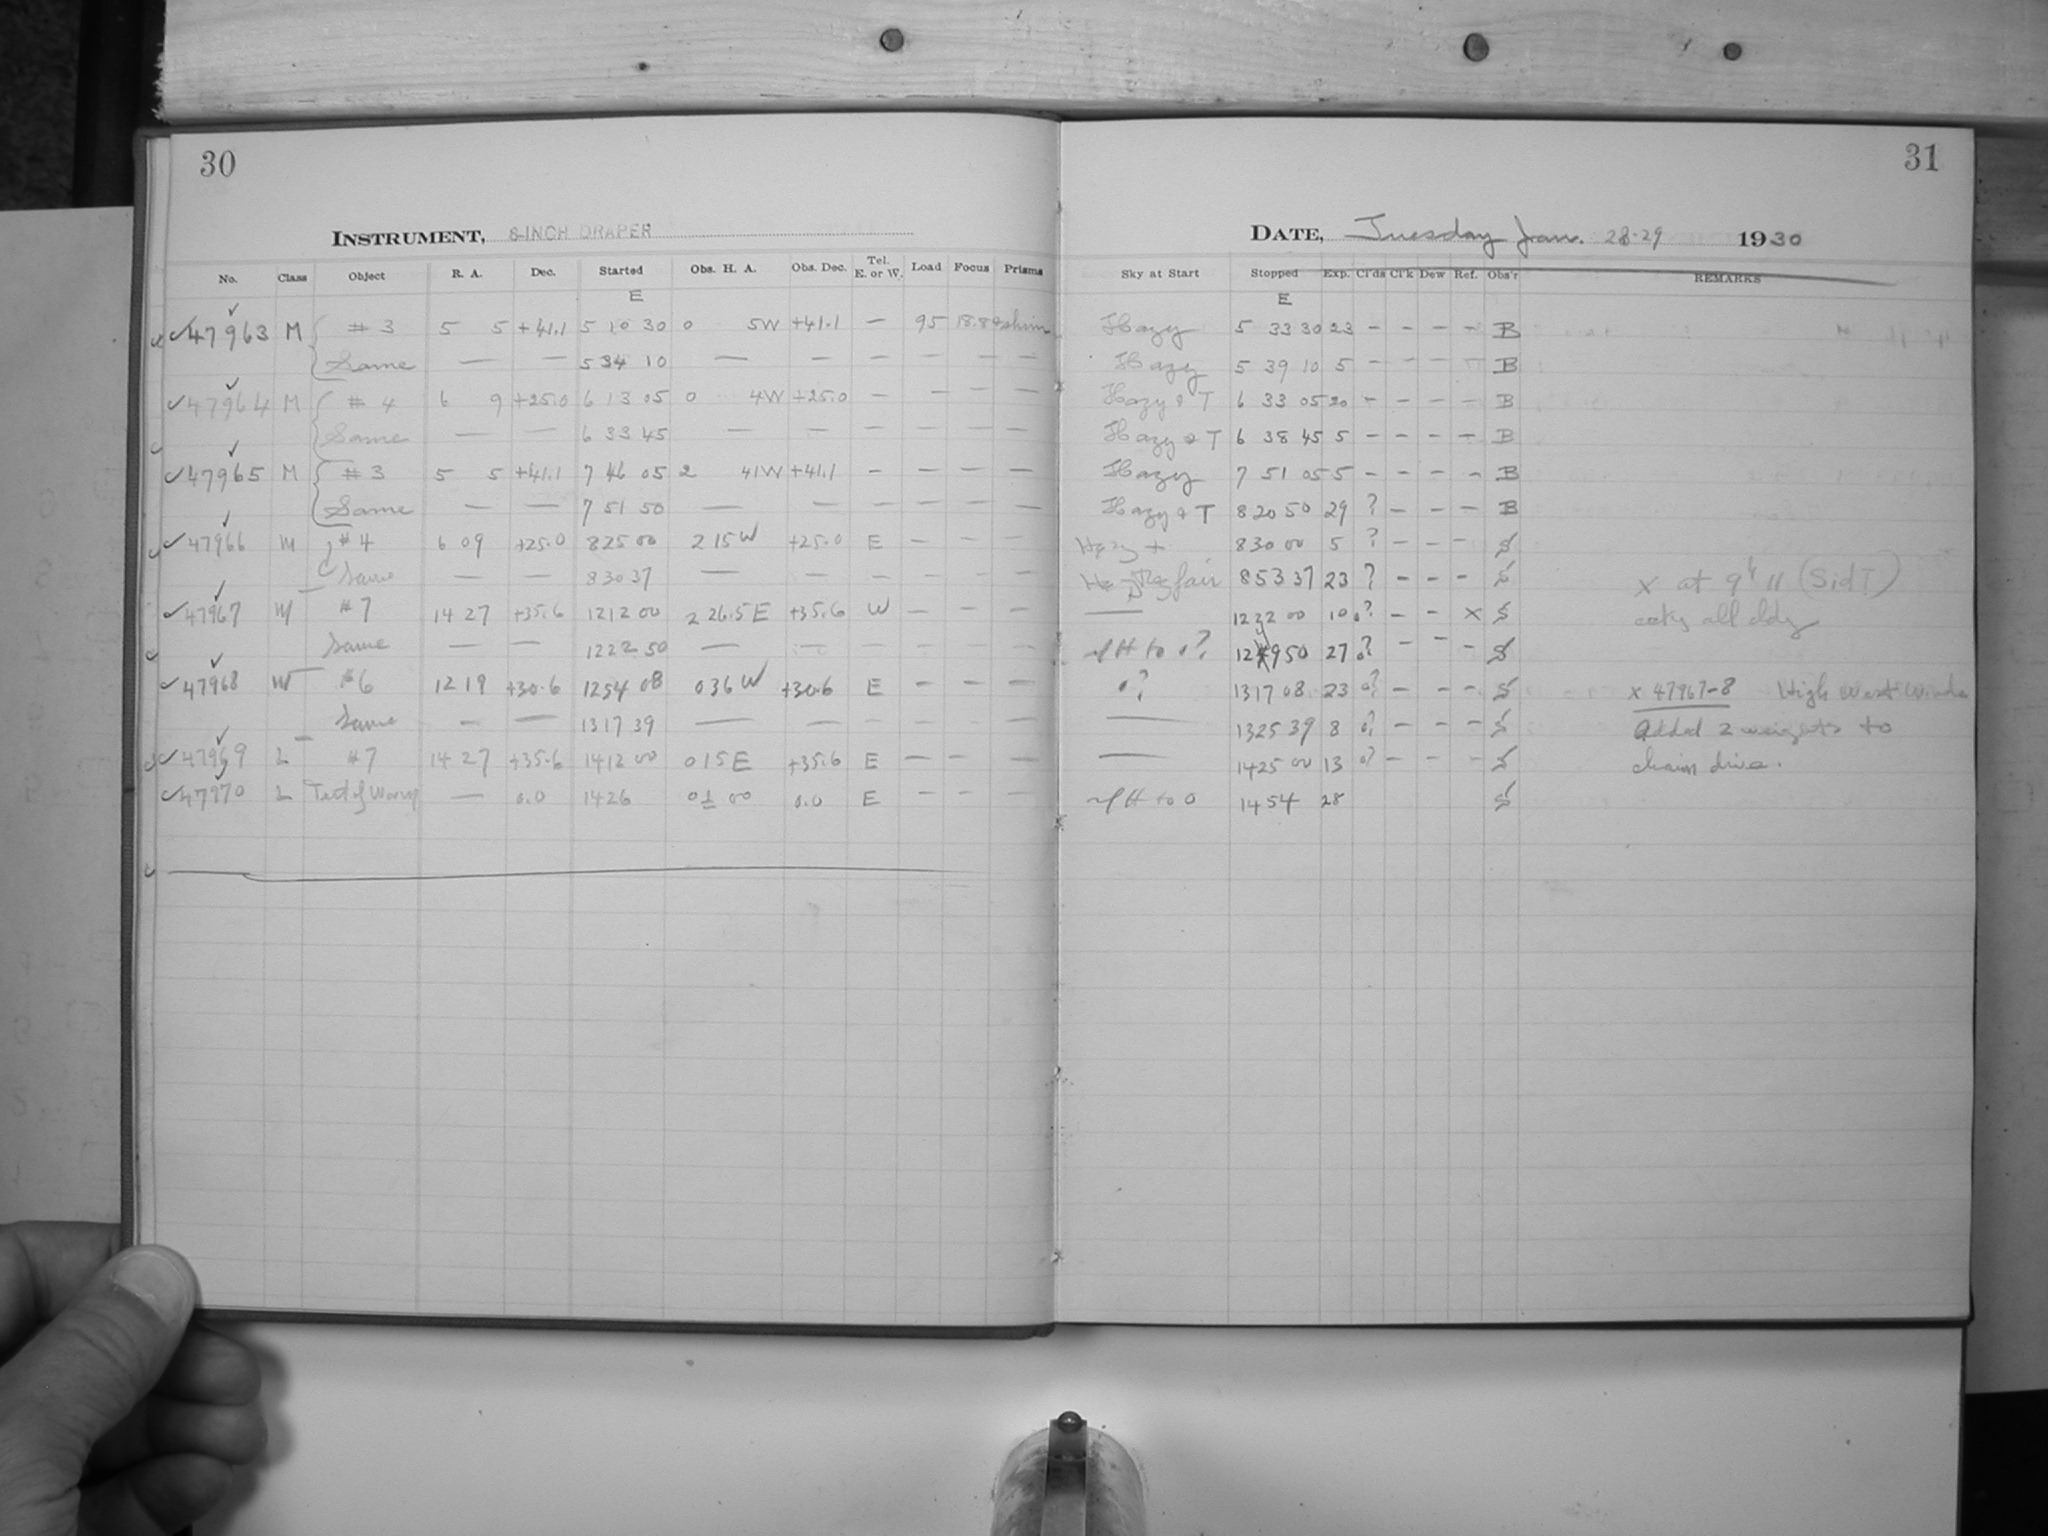 30
INSTRUMENT, 8-INCH DRAPER
No. Class Object R. A. Dec. Started Obs. H. A. Obs. Dec. Tel. E. or W. Load Focus Prisms
E
47963 M # 3 5 5 +41.1 5 10 30 0 5W +41.1 — 95 18.8
Same — — 5 34 10 — — — — — —
47964 M # 4 6 9 +25.0 6 13 05 0 4W +25.0 — — — —
Same — — 6 33 45 — — — — — —
47965 M # 3 5 5 +41.1 7 46 05 2 41W +41.1 — — — —
Same — — 7 51 50 — — — — — —
47966 M #4 6 09 +25.0 8 25 00 2 15W +25.0 E — — —
Same — — 8 30 37 — — — — — —
47967 M #7 14 27 +35.6 12 12 00 2 26.5E +35.6 W — — —
Same — — 12 22 50 — — — — — —
47968 M #6 12 19 +30.6 12 54 08 0 36W +30.6 E — — —
Same — — 13 17 39 — — — — — —
47969 L #7 14 27 +35.6 14 12 00 0 15E +35.6 E — — —
47970 L Test of Worm — 0.0 14 26 00 0.0 E — — —
31
DATE, Tuesday Jan. 28-29 1930
Sky at Start Stopped Exp. Cl'ds Cl'k Dew Ref. Obs'r REMARKS
E
Hazy 5 33 30 23 — — — — B
Hazy 5 39 10 5 — — — — B
Hazy & T 6 33 05 20 — — — — B
Hazy & T 6 38 45 5 — — — — B
Hazy 7 51 05 5 — — — — B
Hazy & T 8 20 50 29 ? — — — B
Hazy + 8 30 00 5 ? — — — S
fair 8 53 37 23 ? — — — S x at 9h 11 (Sid T)
— 12 22 00 10 0? — — x S all cldy
H to 0? 12 49 50 27 0? — — — S
0? 13 17 08 23 0? — — — S x 47967-8 High West Winds
— 13 25 39 8 0? — — — S Added 2 weights to
— 14 25 00 13 0? — — — S chain drive.
H to 0 14 54 28 S